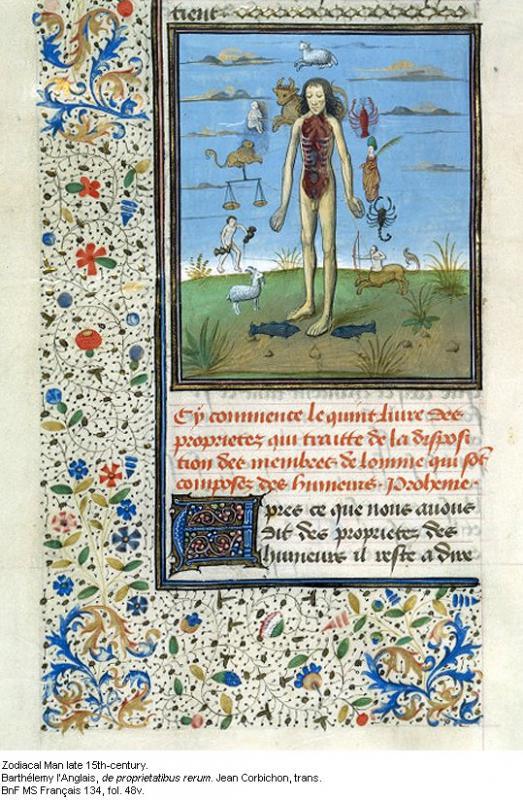 tient
Cy commence le quint livre des
proprietez qui traitte de la disposi
tion des membres de lomme qui sōt
composez des humeurs. Proheme.
Apres ce que nous avons
dit des proprietez des
humeurs il reste a dire
Zodiacal Man late 15th-century.
Barthélemy l'Anglais, de proprietatibus rerum. Jean Corbichon, trans.
BnF MS Français 134, fol. 48v.